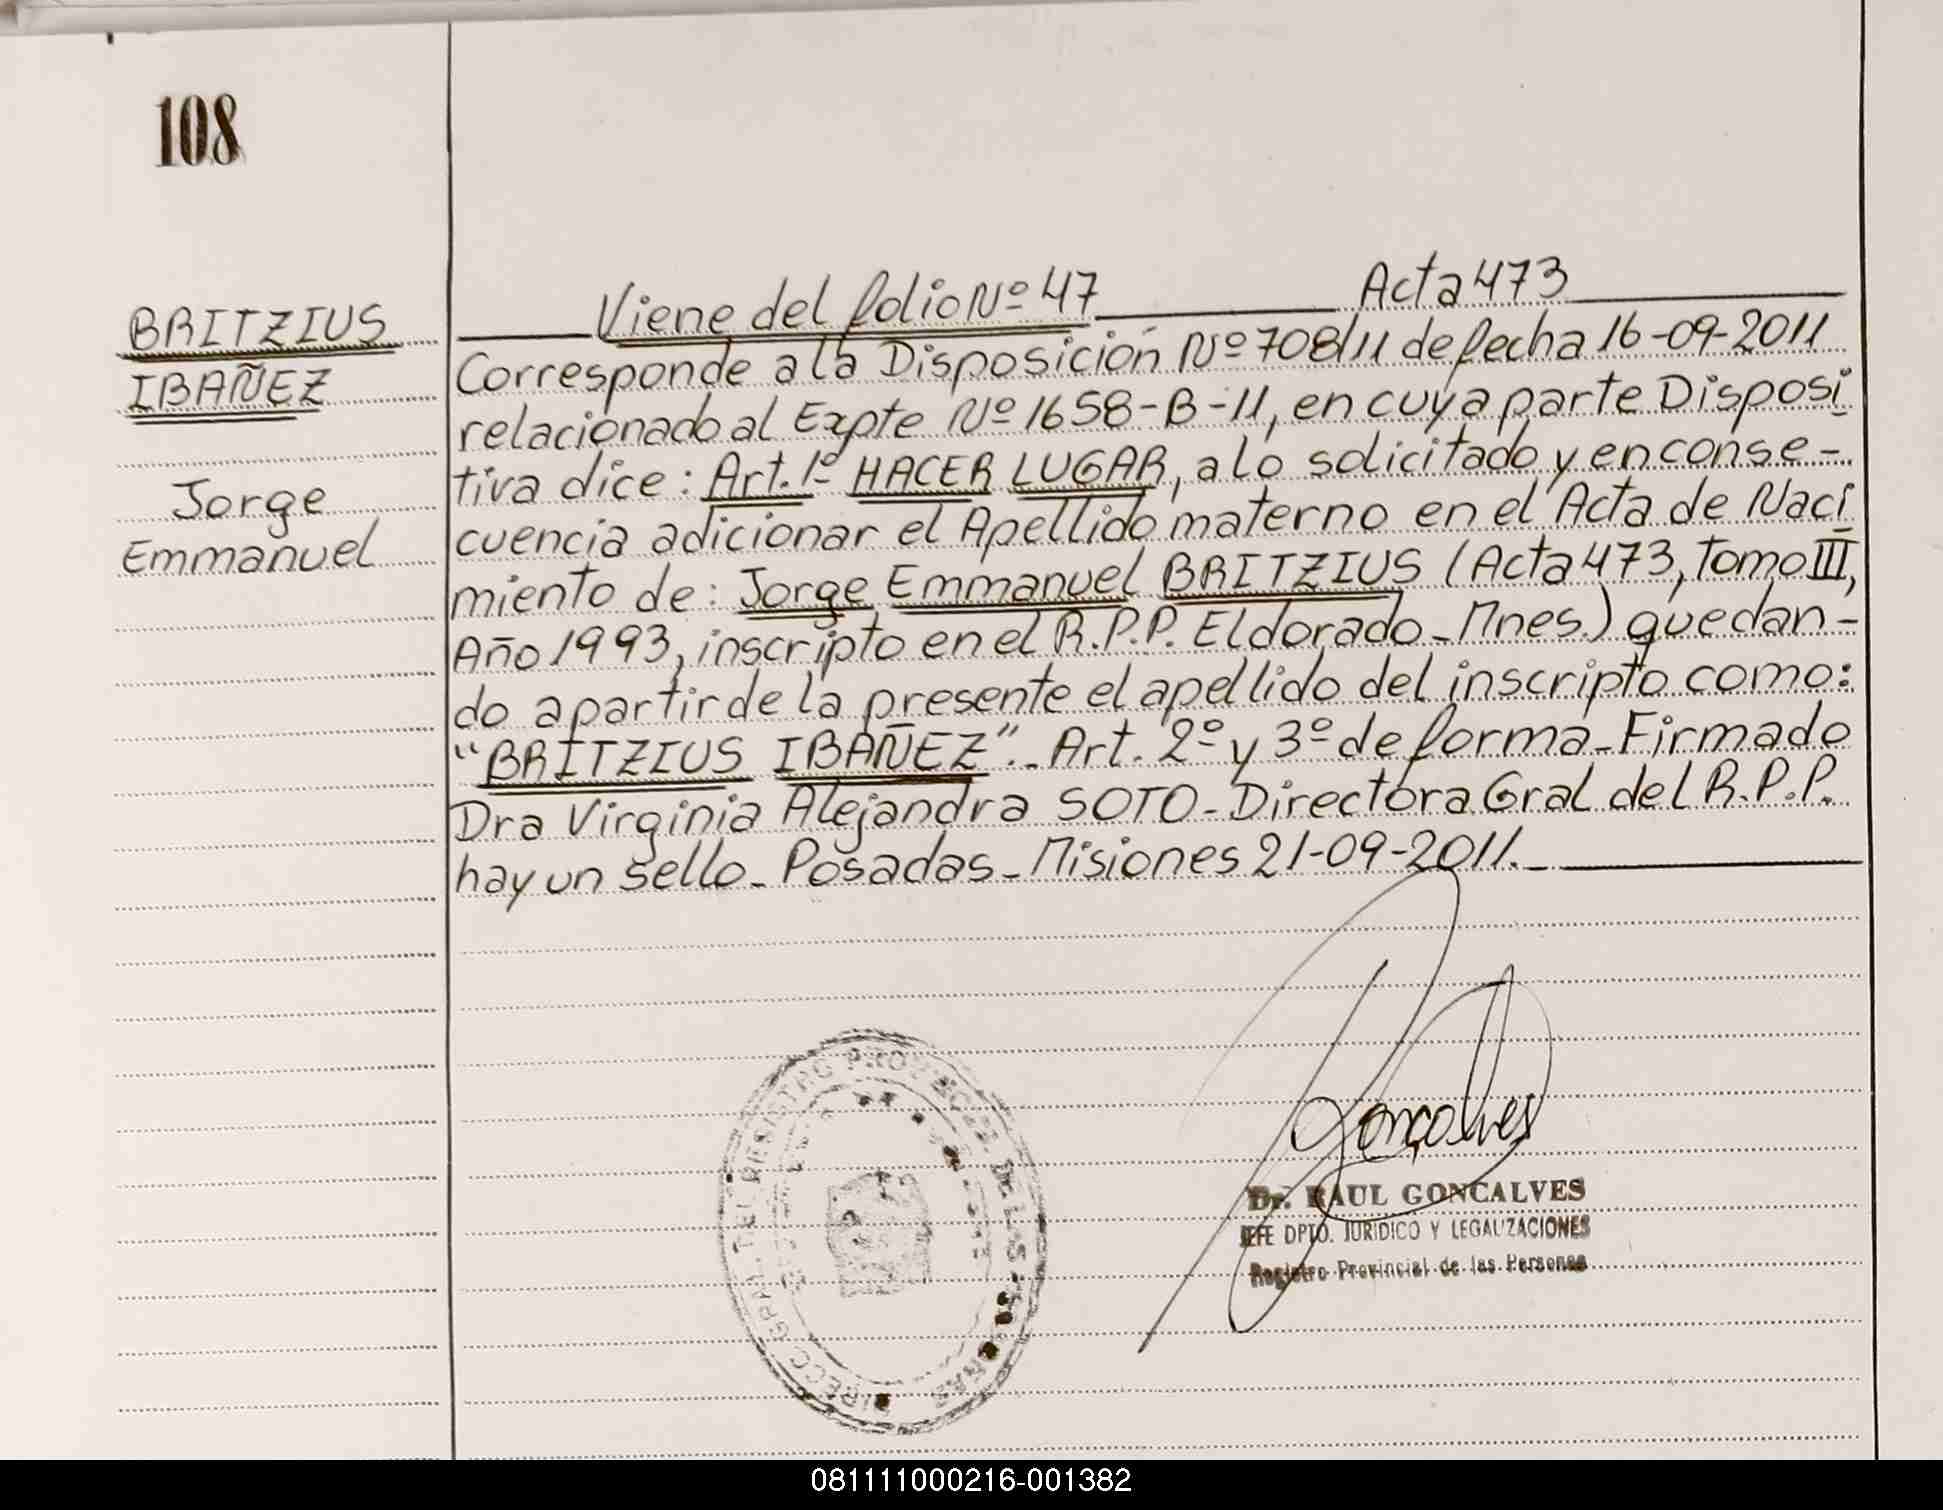 108
BRITZIUS
IBAÑEZ
Jorge
Emmanuel
Viene del folio Nº 47 Acta 473
Corresponde a la Disposición Nº 708/11 de fecha 16-09-2011
relacionado al Expte Nº 1658-B-11, en cuya parte Disposi
tiva dice: Art. 1º HACER LUGAR, a lo solicitado y en conse-
cuencia adicionar el Apellido materno en el Acta de Naci
miento de: Jorge Emmanuel BRITZIUS (Acta 473, Tomo III,
Año 1993, inscripto en el R.P.P. Eldorado-Mnes.) quedan-
do a partir de la presente el apellido del inscripto como:
"BRITZIUS IBAÑEZ".- Art. 2º y 3º de forma-Firmado
Dra Virginia Alejandra SOTO-Directora Gral del R.P.P.
hay un sello-Posadas-Misiones 21-09-2011.
DIRECC. GRAL. DEL REGISTRO PROVINCIAL DE LAS PERSONAS
Gonçalves
Dr. RAUL GONCALVES
JEFE DPTO. JURIDICO Y LEGALIZACIONES
Registro Provincial de las Personas
081111000216-001382